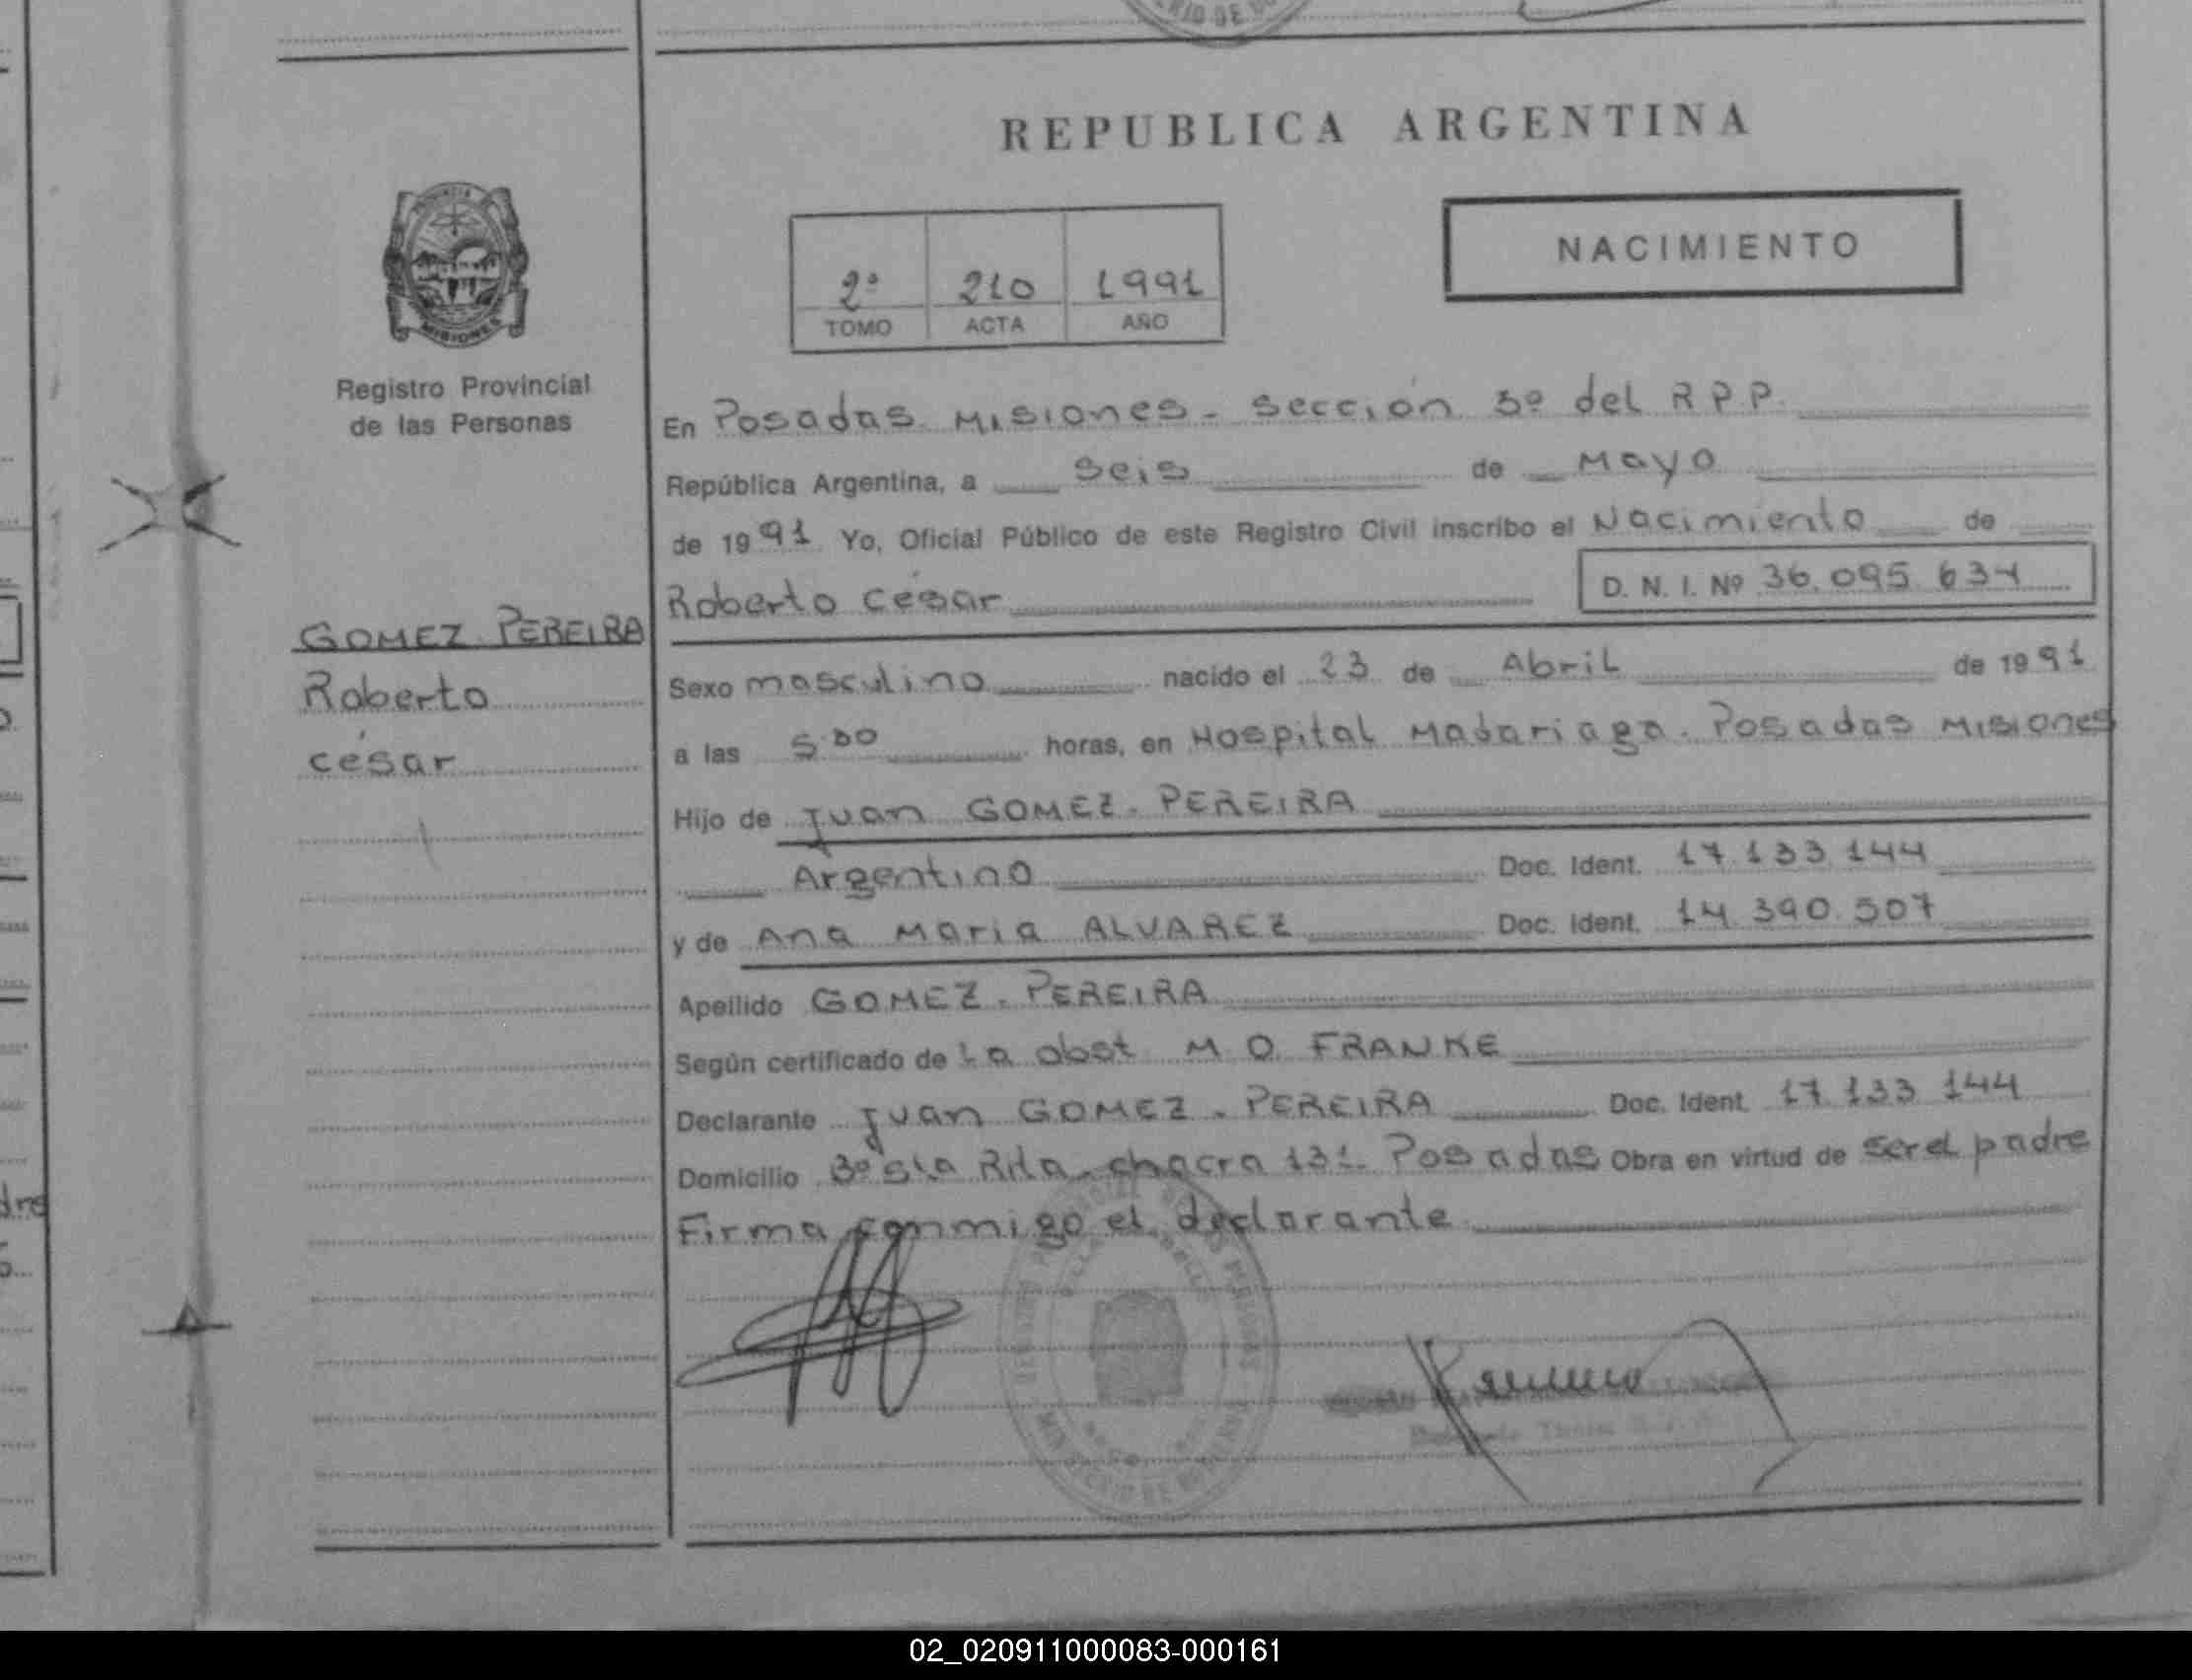 REPUBLICA ARGENTINA
NACIMIENTO
2º 210 1991
TOMO ACTA AÑO
MISIONES
Registro Provincial
de las Personas
GOMEZ PEREIRA
Roberto
césar
En Posadas Misiones - Sección 3º del R P P
República Argentina, a Seis de Mayo
de 1991 Yo, Oficial Público de este Registro Civil inscribo el Nacimiento de
Roberto césar D. N. I. Nº 36.095.634
Sexo masculino nacido el 23 de Abril de 1991
a las 5:00 horas, en Hospital Madariaga. Posadas Misiones
Hijo de Juan GOMEZ - PEREIRA
Argentino Doc. Ident. 17.133.144
y de Ana Maria ALVAREZ Doc. Ident. 14.390.507
Apellido GOMEZ - PEREIRA
Según certificado de La obst M O FRANKE
Declarante Juan GOMEZ - PEREIRA Doc. Ident. 17.133 144
Domicilio Bº Sta Rita - chacra 131 Posadas Obra en virtud de ser el padre
Firma conmigo el declarante
02_020911000083-000161